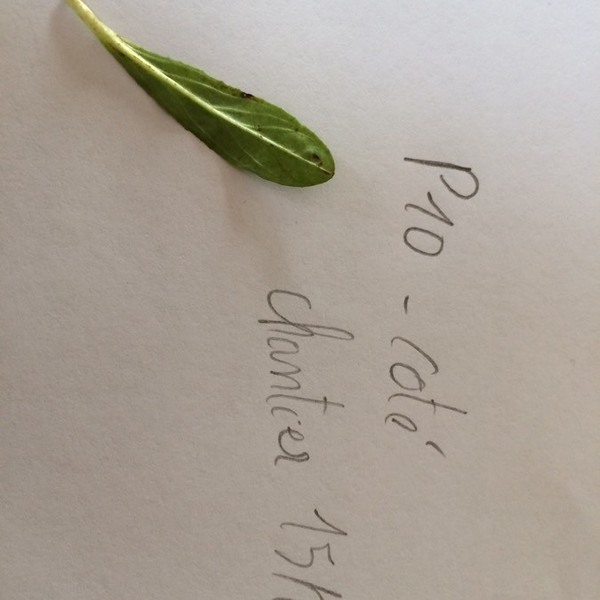 P10 - coté
chantier 15/